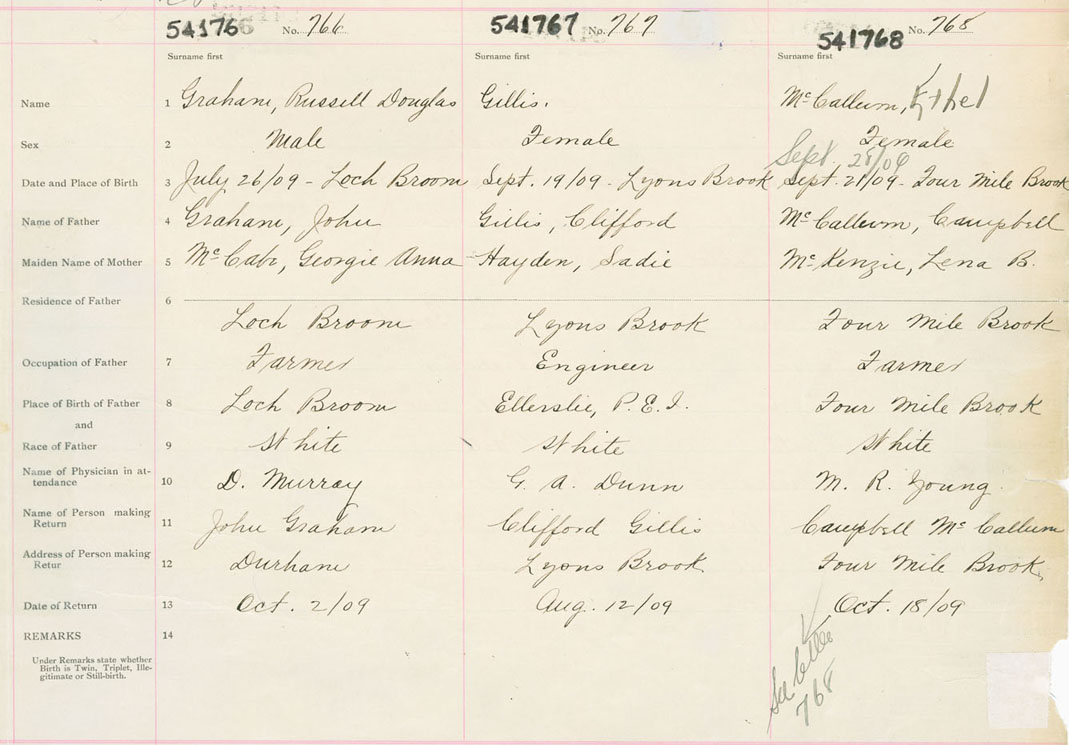 541766 No. 766 541767 No. 767 541768 No. 768
Surname first Surname first Surname first
Name 1 Graham, Russell Douglas Gillis. McCallum, Ethel
Sex 2 Male Female Female
Sept. 28/06
Date and Place of Birth 3 July 26/09 - Loch Broom Sept. 19/09 - Lyons Brook Sept. 21/09 - Four Mile Brook
Name of Father 4 Graham, John Gillis, Clifford McCallum, Campbell
Maiden Name of Mother 5 McCabe, Georgie Anna Hayden, Sadie McKenzie, Lena B.
Residence of Father 6
Loch Broom Lyons Brook Four Mile Brook
Occupation of Father 7 Farmer Engineer Farmer
Place of Birth of Father 8 Loch Broom Ellerslie, P.E.I. Four Mile Brook
and
Race of Father 9 White White White
Name of Physician in at-
tendance 10 D. Murray G. A. Dunn M. R. Young
Name of Person making
Return 11 John Graham Clifford Gillis Campbell McCallum
Address of Person making
Retur 12 Durham Lyons Brook Four Mile Brook
Date of Return 13 Oct. 2/09 Aug. 12/09 Oct. 18/09
REMARKS 14
Under Remarks state whether
Birth is Twin, Triplet, Ille-
gitimate or Still-birth.
768